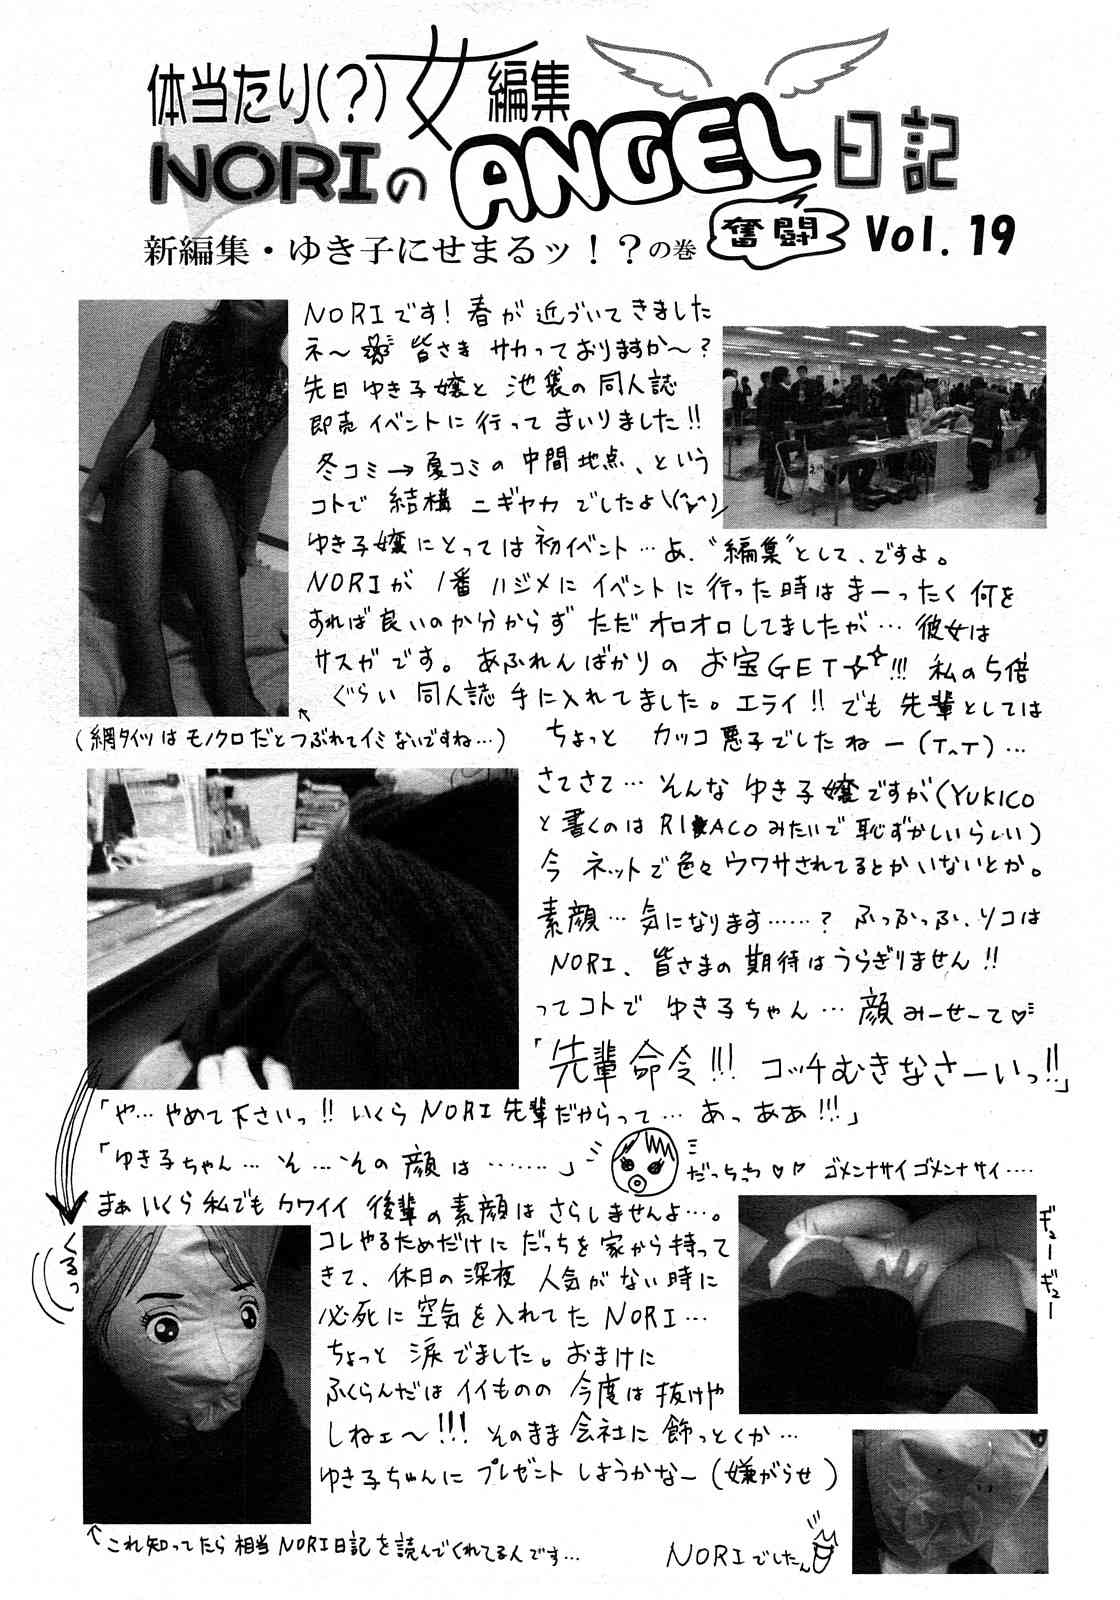 体当たり(?)女編集
NORIのANGEL日記
奮闘
Vol. 19
新編集・ゆき子にせまるッ!?の巻
NORIです! 春が近づいてきました
ネ〜 皆さま サカっておりますか〜?
先日 ゆき子嬢と 池袋の同人誌
即売イベントに行ってまいりました!!
冬コミ→夏コミの中間地点、という
コトで 結構 ニギヤカ でしたよ\(^v^)/
ゆき子嬢にとっては初イベント…あ、“編集”として、ですよ。
NORIが 1番 ハジメにイベントに行った時は まーったく何を
すれば良いのか分からず ただオロオロしてましたが… 彼女は
サスガです。あふれんばかりの お宝GET☆☆!!! 私の5倍
ぐらい 同人誌 手に入れてました。エライ!! でも 先輩としては
ちょっと カッコ悪子でしたねー(T^T)…
(網タイツはモノクロだとつぶれてイミないですね…)
さてさて… そんな ゆき子嬢ですが(YUKICO
と書くのはRI★ACOみたいで恥ずかしいらしい)
今 ネットで色々ウワサされてるとかいないとか。
素顔… 気になります……? ふっふっふ、ソコは
NORI、皆さまの期待はうらぎりません!!
ってコトで ゆき子ちゃん… 顔みーせーて♡
「先輩命令!!! コッチむきなさーいっ!!」
「や…やめて下さいっ!! いくらNORI先輩だからって… あっああ!!!」
「ゆき子ちゃん… そ…その顔は……」
だっちっ♡ ゴメンナサイゴメンナサイ…
まぁいくら私でもカワイイ後輩の素顔はさらしませんよ…。
くるっ
コレやるためだけに だっちを家から持って
きて、休日の深夜 人気がない時に
必死に空気を入れてたNORI…
ちょっと 涙でました。おまけに
ふくらんだはイイものの 今度は抜けや
しねェ〜!!! そのまま会社に飾っとくか…
ゆき子ちゃんに プレゼントしようかなー(嫌がらせ)
ギューギュー
これ知ってたら相当NORI日記を読んでくれてる人です…
NORIでしたん